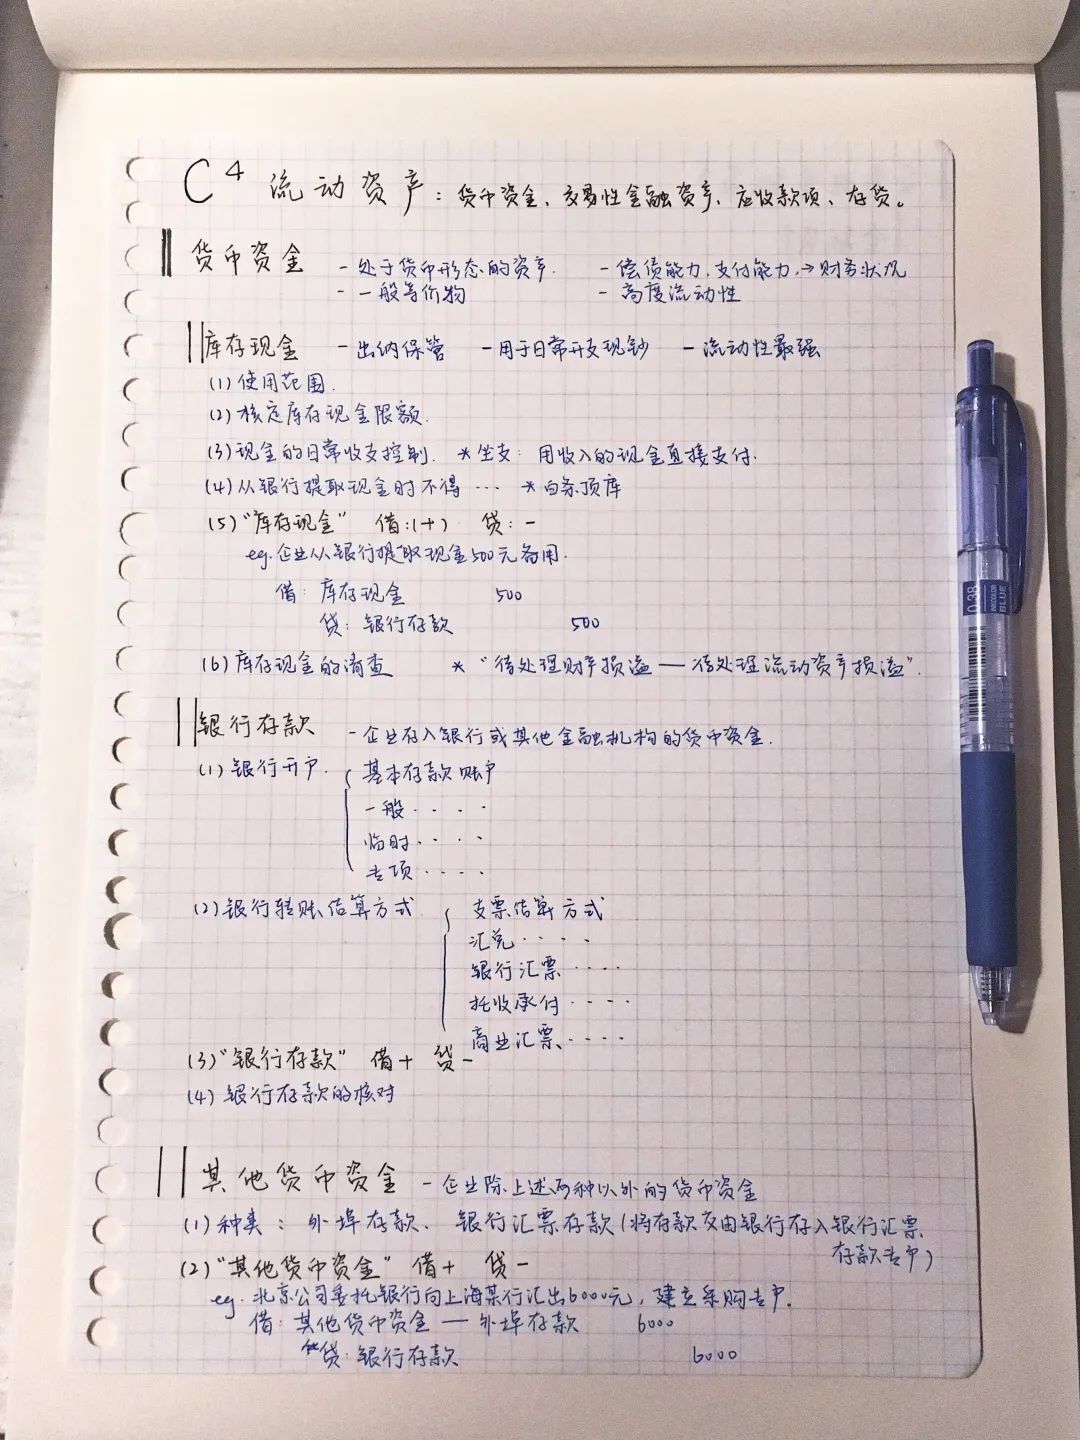 C4 流动资产：货币资金、交易性金融资产、应收款项、存货。
货币资金 -处于货币形态的资产. -偿债能力,支付能力,→财务状况
-一般等价物 -高度流动性
库存现金 -出纳保管 -用于日常开支现钞 -流动性最强
(1)使用范围.
(2)核定库存现金限额.
(3)现金的日常收支控制. *坐支：用收入的现金直接支付.
(4)从银行提取现金时不得… *白条顶库
(5)"库存现金" 借:(+) 贷:-
eg.企业从银行提取现金500元备用.
借：库存现金 500
贷：银行存款 500
(6)库存现金的清查 *"待处理财产损溢—待处理流动资产损溢".
银行存款 -企业存入银行或其他金融机构的货币资金.
(1)银行开户. 基本存款账户
一般····
临时····
专项····
(2)银行转账结算方式 支票结算方式
汇兑····
银行汇票····
托收承付····
商业汇票····
(3)"银行存款" 借+ 贷-
(4)银行存款的核对
其他货币资金 -企业除上述两种以外的货币资金
(1)种类：外埠存款、银行汇票存款(将存款交由银行存入银行汇票
存款专户)
(2)"其他货币资金" 借+ 贷-
eg.北京公司委托银行向上海某行汇出6000元，建立采购专户.
借：其他货币资金—外埠存款 6000
贷：银行存款 6000
0.38
UNICOLOR
BLUE